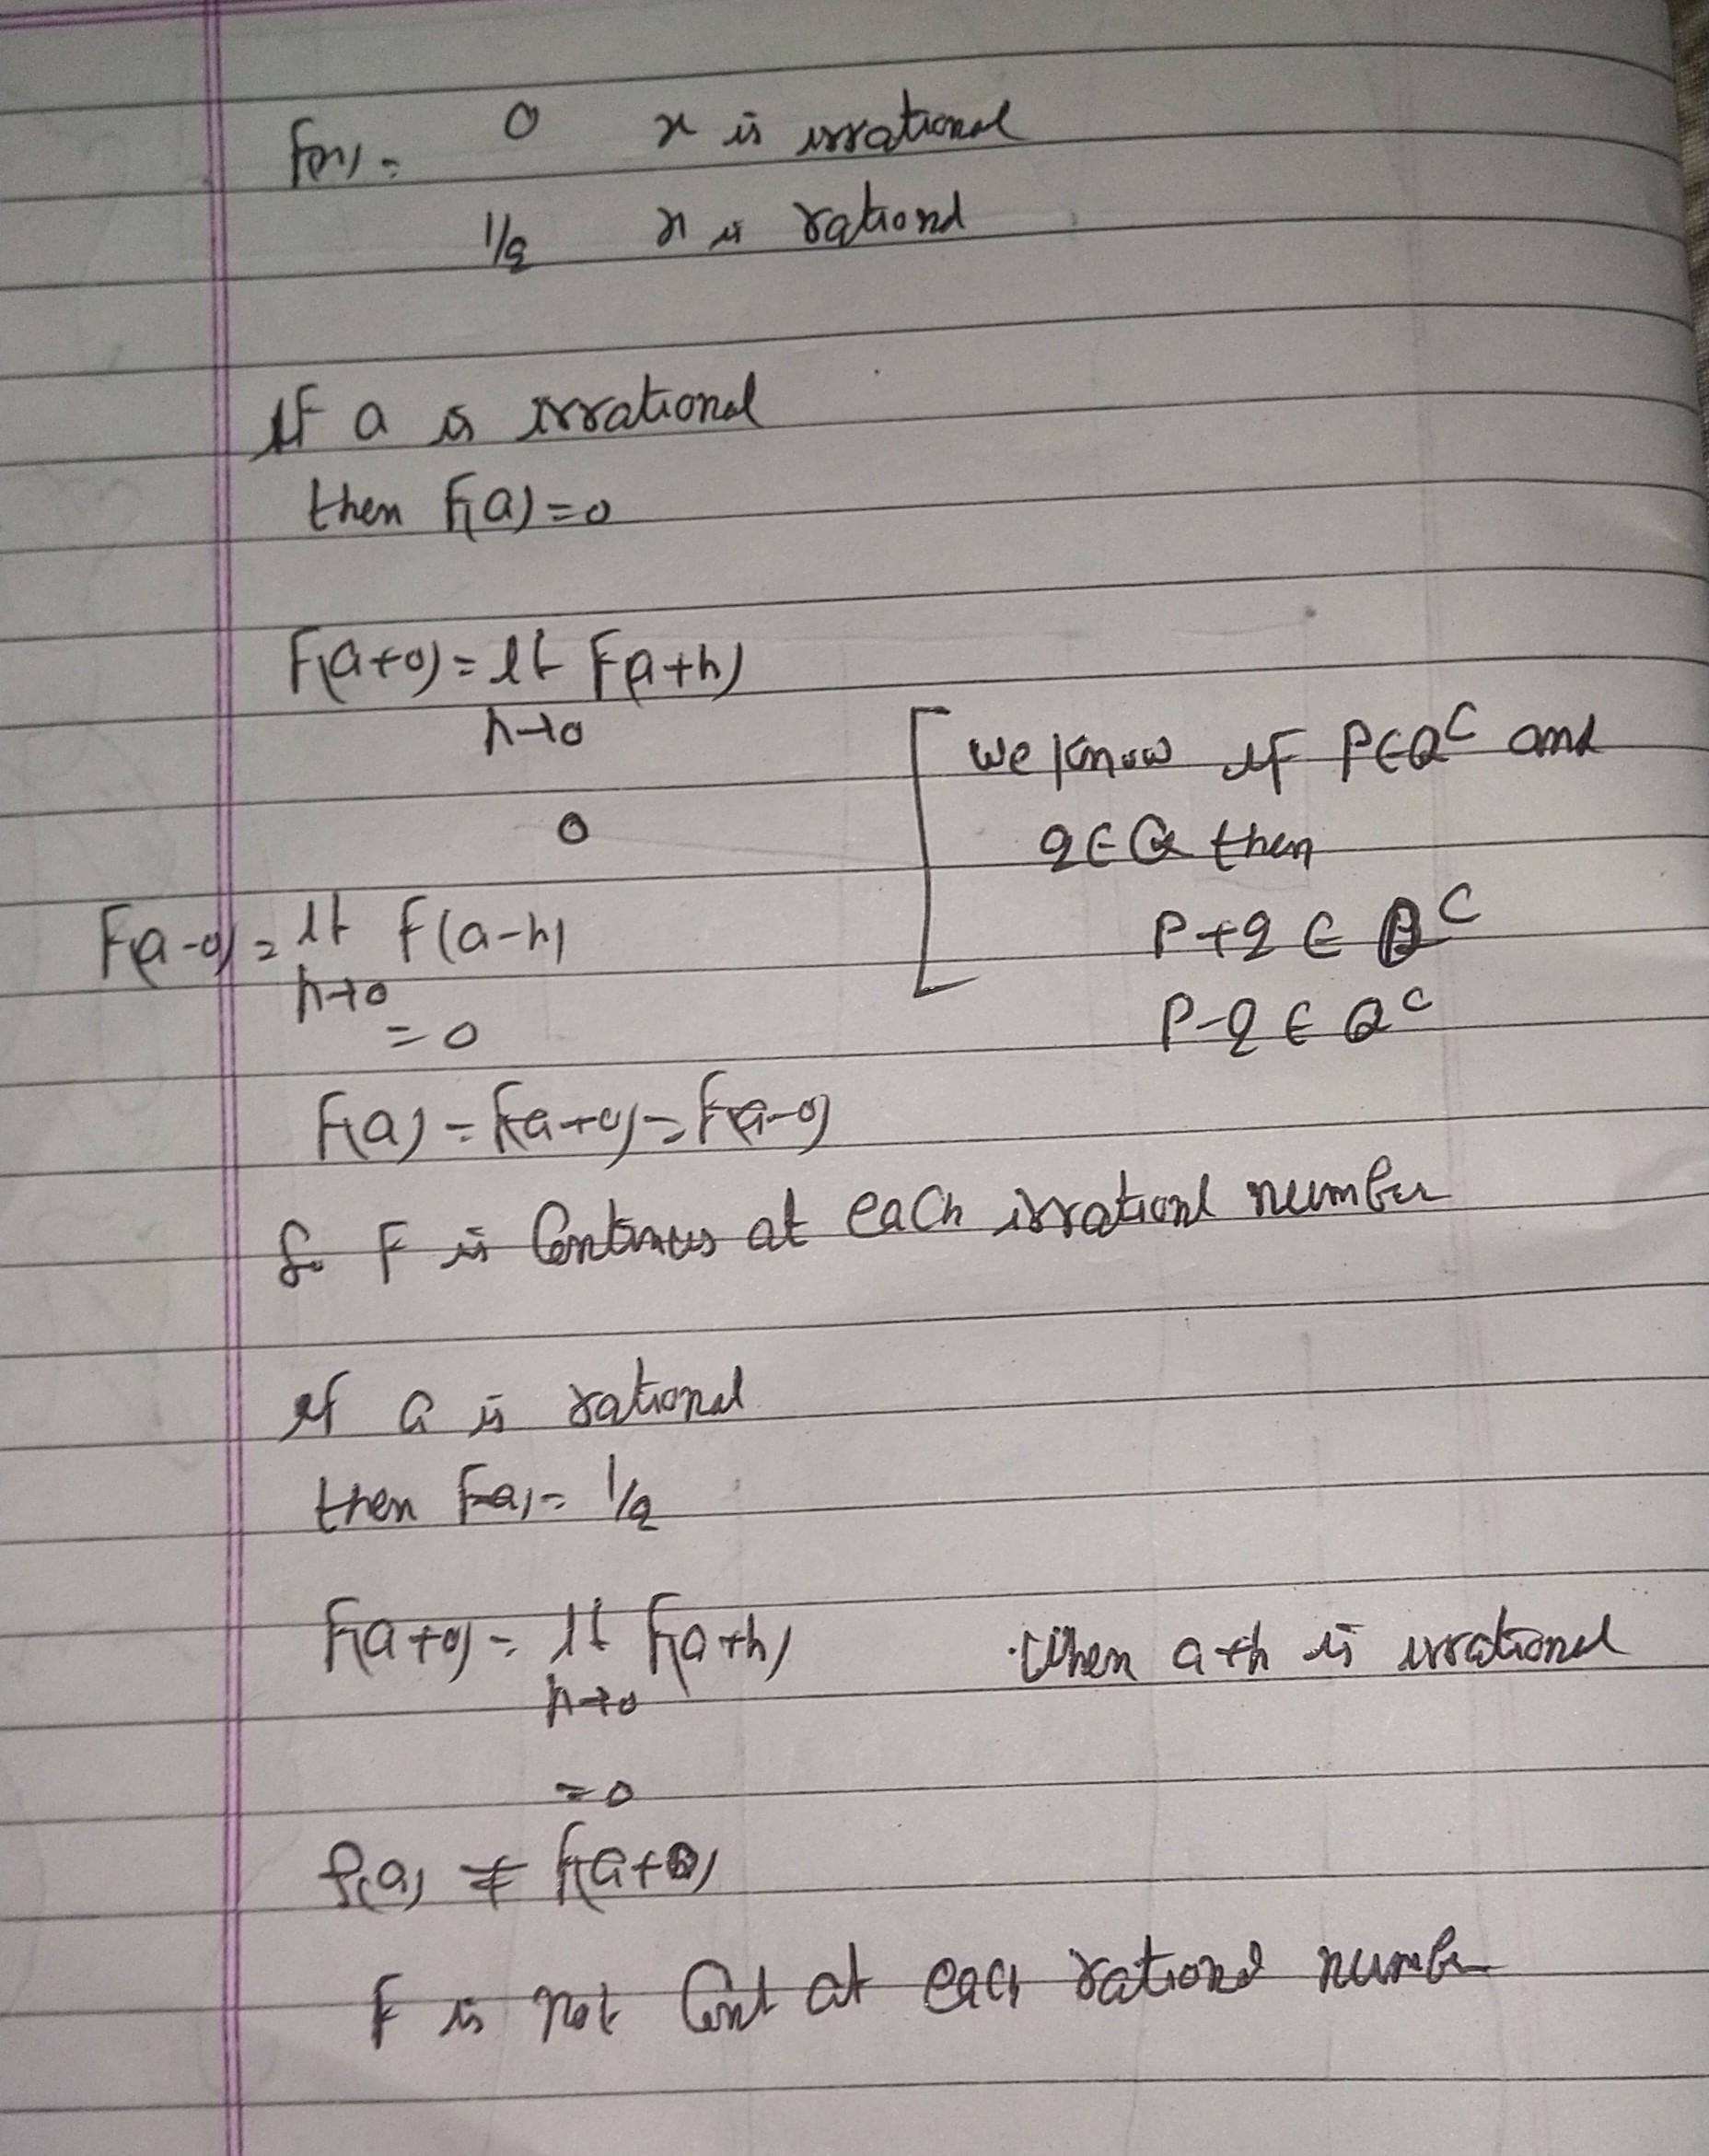 F(x) = 0 x is irrational
1/q x is rational
If a is irrational
then F(a) = 0
F(a+0) = lt F(a+h)
h→0
0
[ we know if P∈Q^C and
q∈Q then
P+q ∈ Q^C
P-q ∈ Q^C
F(a-0) = lt F(a-h)
h→0
= 0
F(a) = F(a+0) = F(a-0)
So F is Continues at each irrational number
If a is rational
then F(a) = 1/q
F(a+0) = lt F(a+h) When a+h is irrational
h→0
= 0
f(a) ≠ F(a+0)
F is not Cont at each rational number